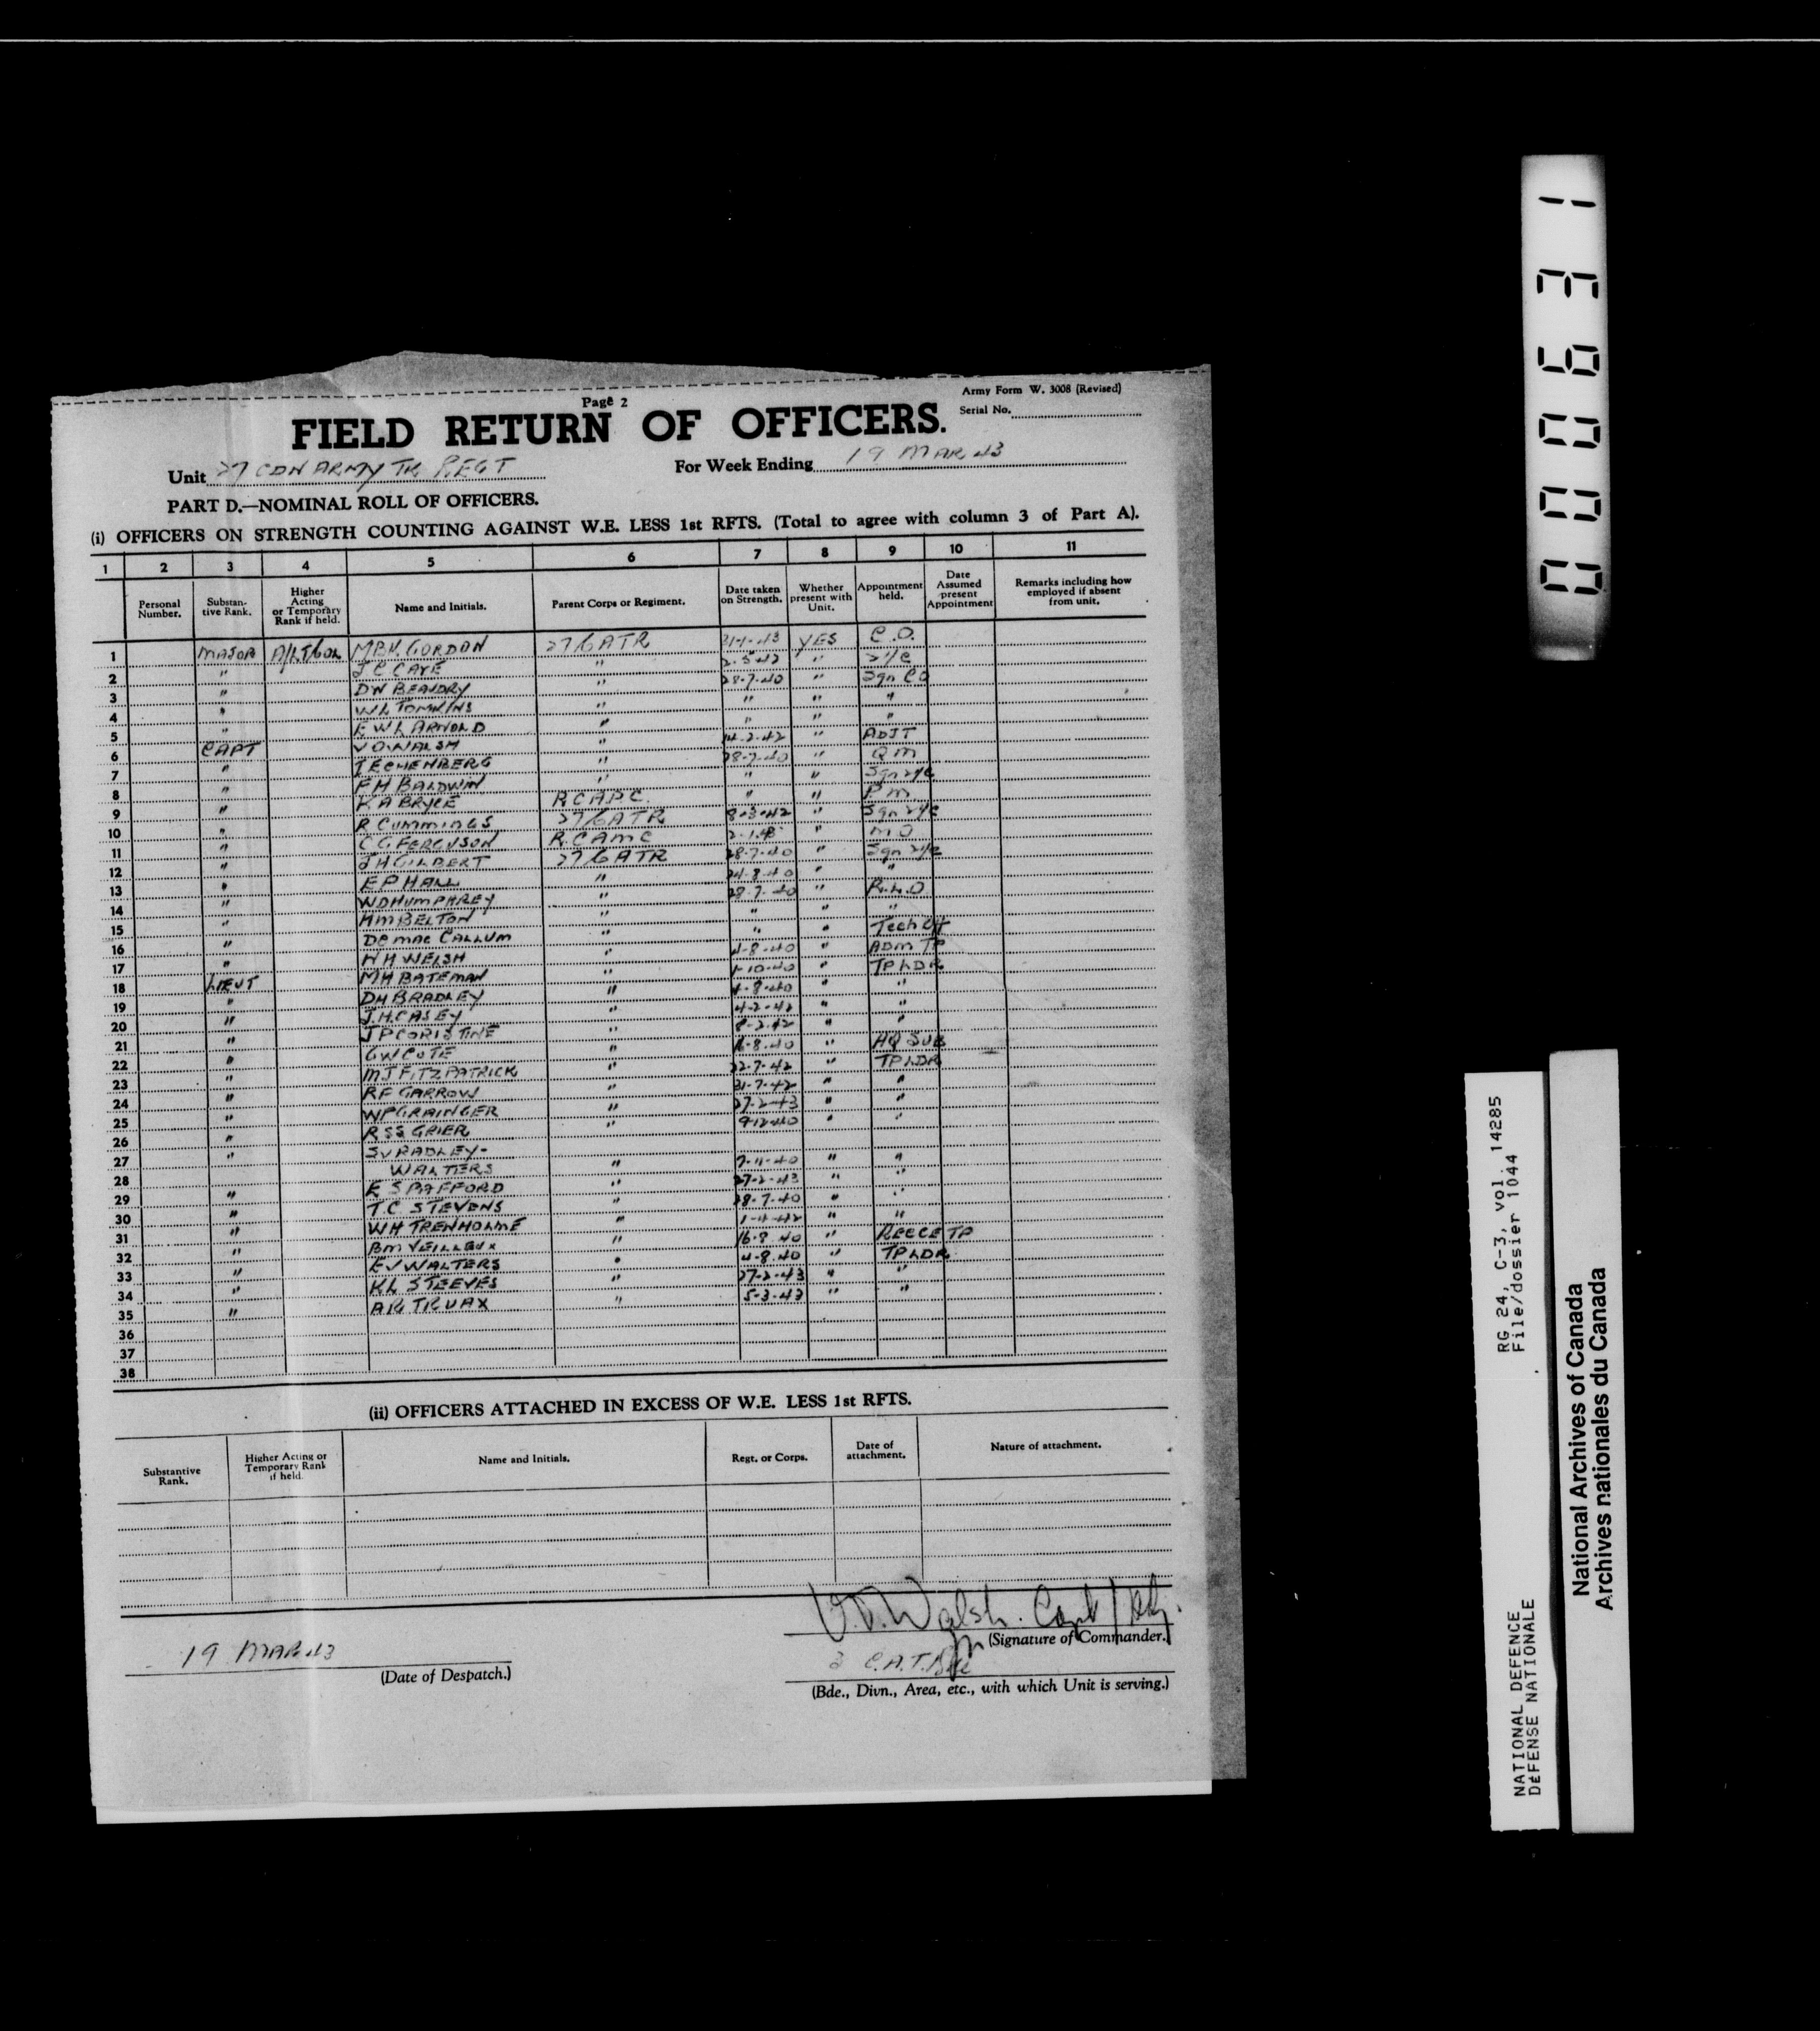 Army Form W. 3008 (Revised)
Page 2
Serial No.
FIELD RETURN OF OFFICERS.
Unit 27 CDN ARMY TK REGT For Week Ending 19 MAR 43
PART D.—NOMINAL ROLL OF OFFICERS.
(i) OFFICERS ON STRENGTH COUNTING AGAINST W.E. LESS 1st RFTS. (Total to agree with column 3 of Part A).
1 2 3 4 5 6 7 8 9 10 11
Personal Number. Substan-tive Rank. Higher Acting or Temporary Rank if held. Name and Initials. Parent Corps or Regiment. Date taken on Strength. Whether present with Unit. Appointment held. Date Assumed present Appointment Remarks including how employed if absent from unit.
1 MAJOR A/LT/COL GORDON 27 CATR YES C.O.
2 " J C CAVE " 2-5-42 " 2i/c
3 " D W BEAUDRY " 28-7-40 " Sqn CO
4 " W L TOMKINS " " " "
5 " E W L ARNOLD " " " "
6 CAPT V O WALSH " 14-2-42 " ADJT
7 " I EICHENBERG " 28-7-40 " QM
8 " F H BALDWIN " " " Sqn 2i/c
9 " K A BRYCE R.C.A.P.C. " " PM
10 " R CUMMINGS 27 CATR 8-3-42 " Sqn 2i/c
11 " C G FERGUSON R.C.AMC " MO
12 " J H GILBERT 27 CATR 28-7-40 " Sqn 2i/c
13 " E P HALL " 24-8-40 " "
14 " W D HUMPHREY " 28-7-40 " R.L.O
15 " H M BELTON " " " "
16 " D C MAC CALLUM " " " Tech Off
17 " H H WELSH " 4-8-40 " ADM TP
18 LIEUT M H BATEMAN " 1-10-40 " TP LDR
19 " D H BRADLEY " 4-8-40 " "
20 " J.H. CASEY " 4-2-42 " "
21 " J P CORISTINE " 8-2-42 " "
22 " G W COTE " 16-8-40 " HQ SUB
23 " M J FITZPATRICK " 22-7-42 " TP LDR
24 " R F GARROW " 31-7-42 " "
25 " W P GRAINGER " 27-2-43 " "
26 " R S S GRIER " 9-12-40 " "
27 " S V RADLEY-
28 WALTERS " 7-11-40 " "
29 " E SPAFFORD " 27-2-43 " "
30 " T.C STEVENS " 28-7-40 " "
31 " W H TRENHOLME " 1-4-42 " "
32 " B M VEILLEUX " 16-8-40 " RECCE TP
33 " E V WALTERS " 4-8-40 " TP LDR
34 " K L STEEVES " 27-2-43 " "
35 " A R TRUAX " 5-3-43 " "
36
37
38
(ii) OFFICERS ATTACHED IN EXCESS OF W.E. LESS 1st RFTS.
Substantive Rank. Higher Acting or Temporary Rank if held. Name and Initials. Regt. or Corps. Date of attachment. Nature of attachment.
V.O. Walsh. Capt / Adj.
19 MAR 43 (Signature of Commander.)
(Date of Despatch.) 3 C.A.T. Bde
(Bde., Divn., Area, etc., with which Unit is serving.)
000631
RG 24, C-3, vol. 14285
File/dossier 1044
NATIONAL DEFENCE
DEFENSE NATIONALE
National Archives of Canada
Archives nationales du Canada